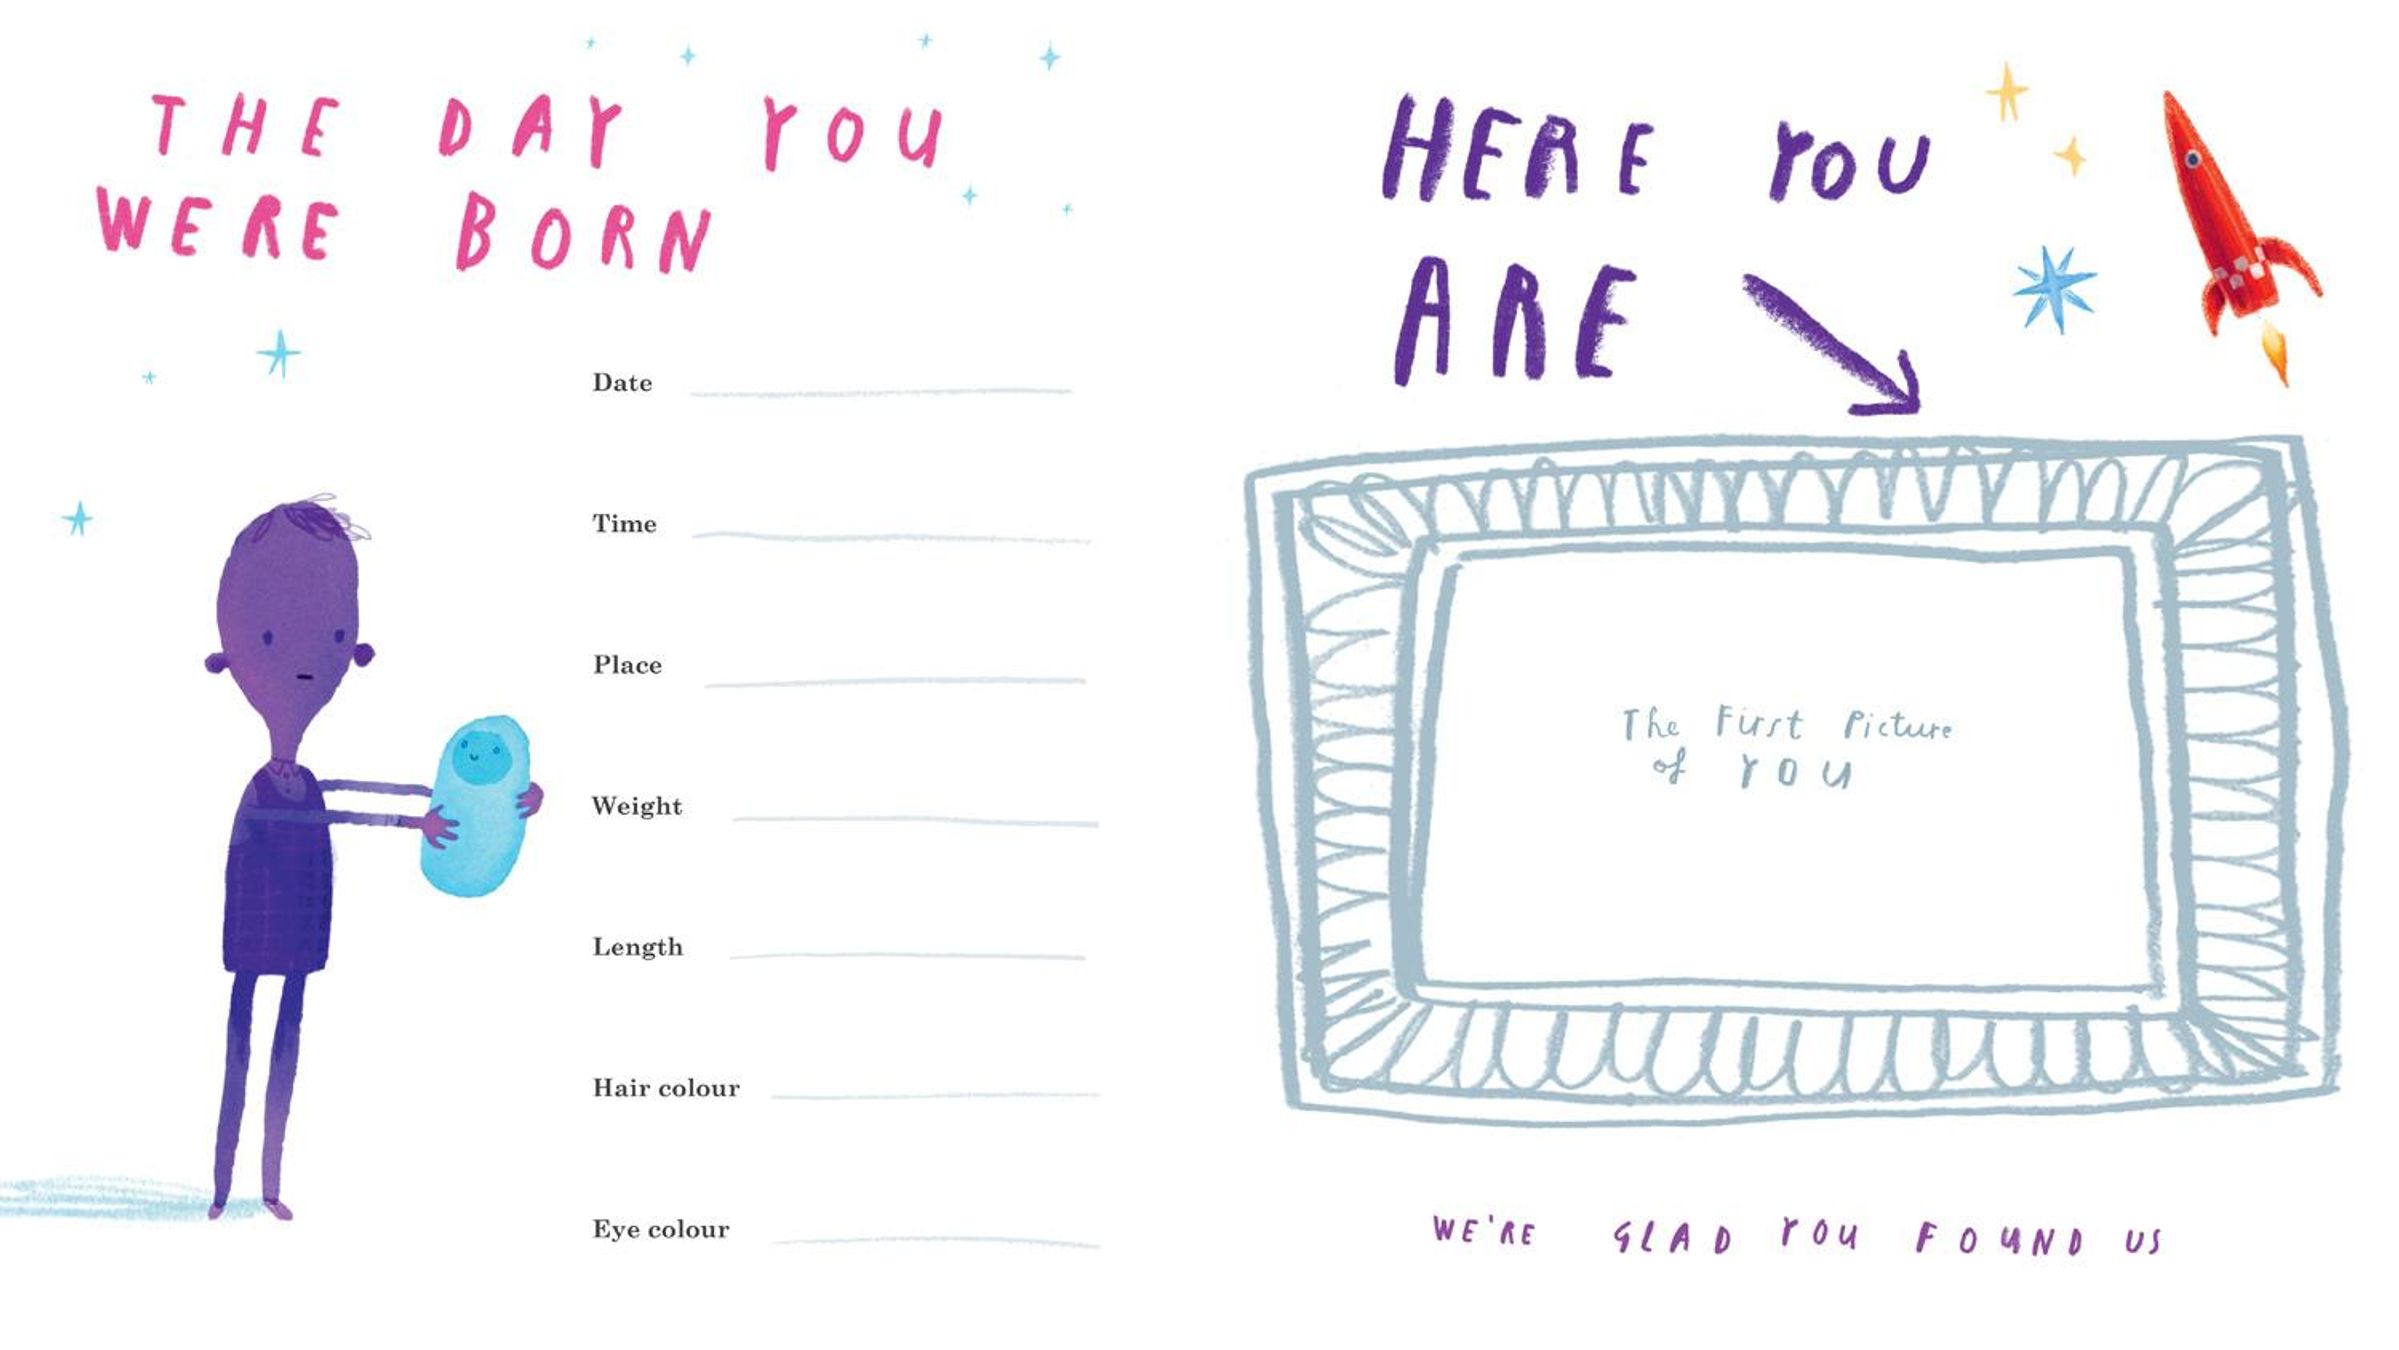 THE DAY YOU
WERE BORN
Date
Time
Place
Weight
Length
Hair colour
Eye colour
HERE YOU
ARE
The First Picture
of YOU
WE'RE GLAD YOU FOUND US